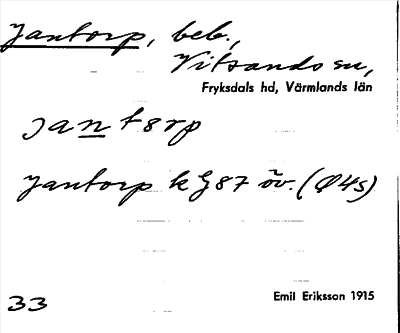 Jantorp, beb.,
Vitsands sn,
Fryksdals hd, Värmlands län
jantorp
Jantorp k G87 öv. (Ø4s)
33
Emil Eriksson 1915